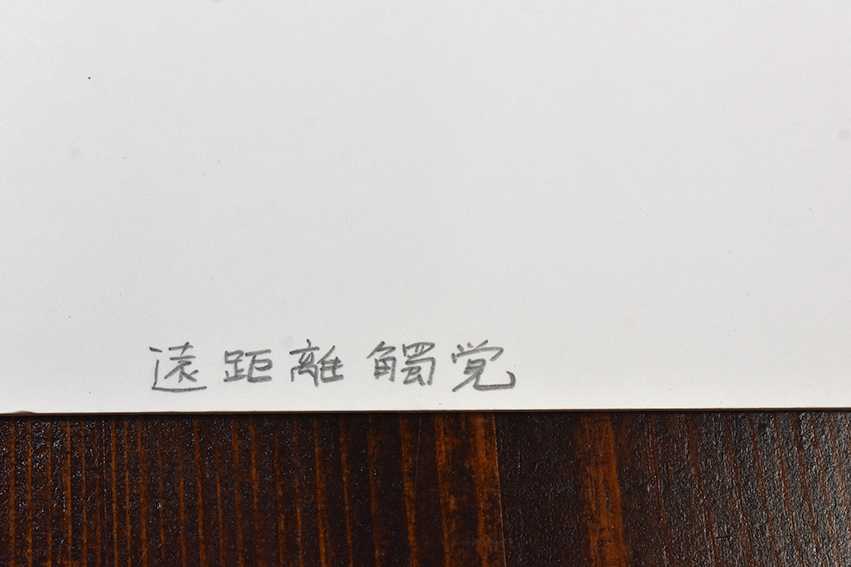 遠距離觸覚